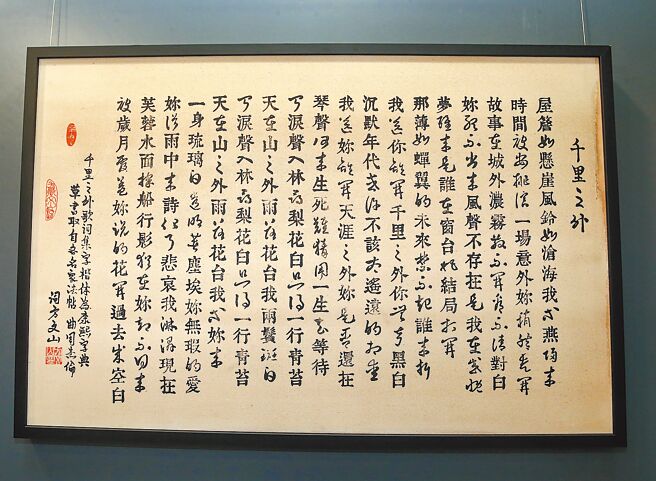 千里之外
屋簷如懸崖風鈴如滄海我等燕歸來
時間被安排演一場意外妳悄然走開
故事在城外濃霧散不開看不清對白
妳聽不出來風聲不存在是我在感慨
夢醒來是誰在窗台把結局打開
那薄如蟬翼的未來禁不起誰來拆
我送你離開千里之外你無聲黑白
沉默年代或許不該太遙遠的相愛
我送妳離開天涯之外妳是否還在
琴聲何來生死難猜用一生去等待
聞淚聲入林尋梨花白只得一行青苔
天在山之外雨落花台我兩鬢斑白
聞淚聲入林尋梨花白只得一行青苔
天在山之外雨落花台我等妳來
一身琉璃白透明著塵埃妳無瑕的愛
妳從雨中來詩化了悲哀我淋濕現在
芙蓉水面採船行影猶在妳卻不回來
被歲月覆蓋妳說的花開過去成空白
千里之外歌詞集字楷体為康熙字典
草書取自各名家法帖 曲周杰倫
詞方文山